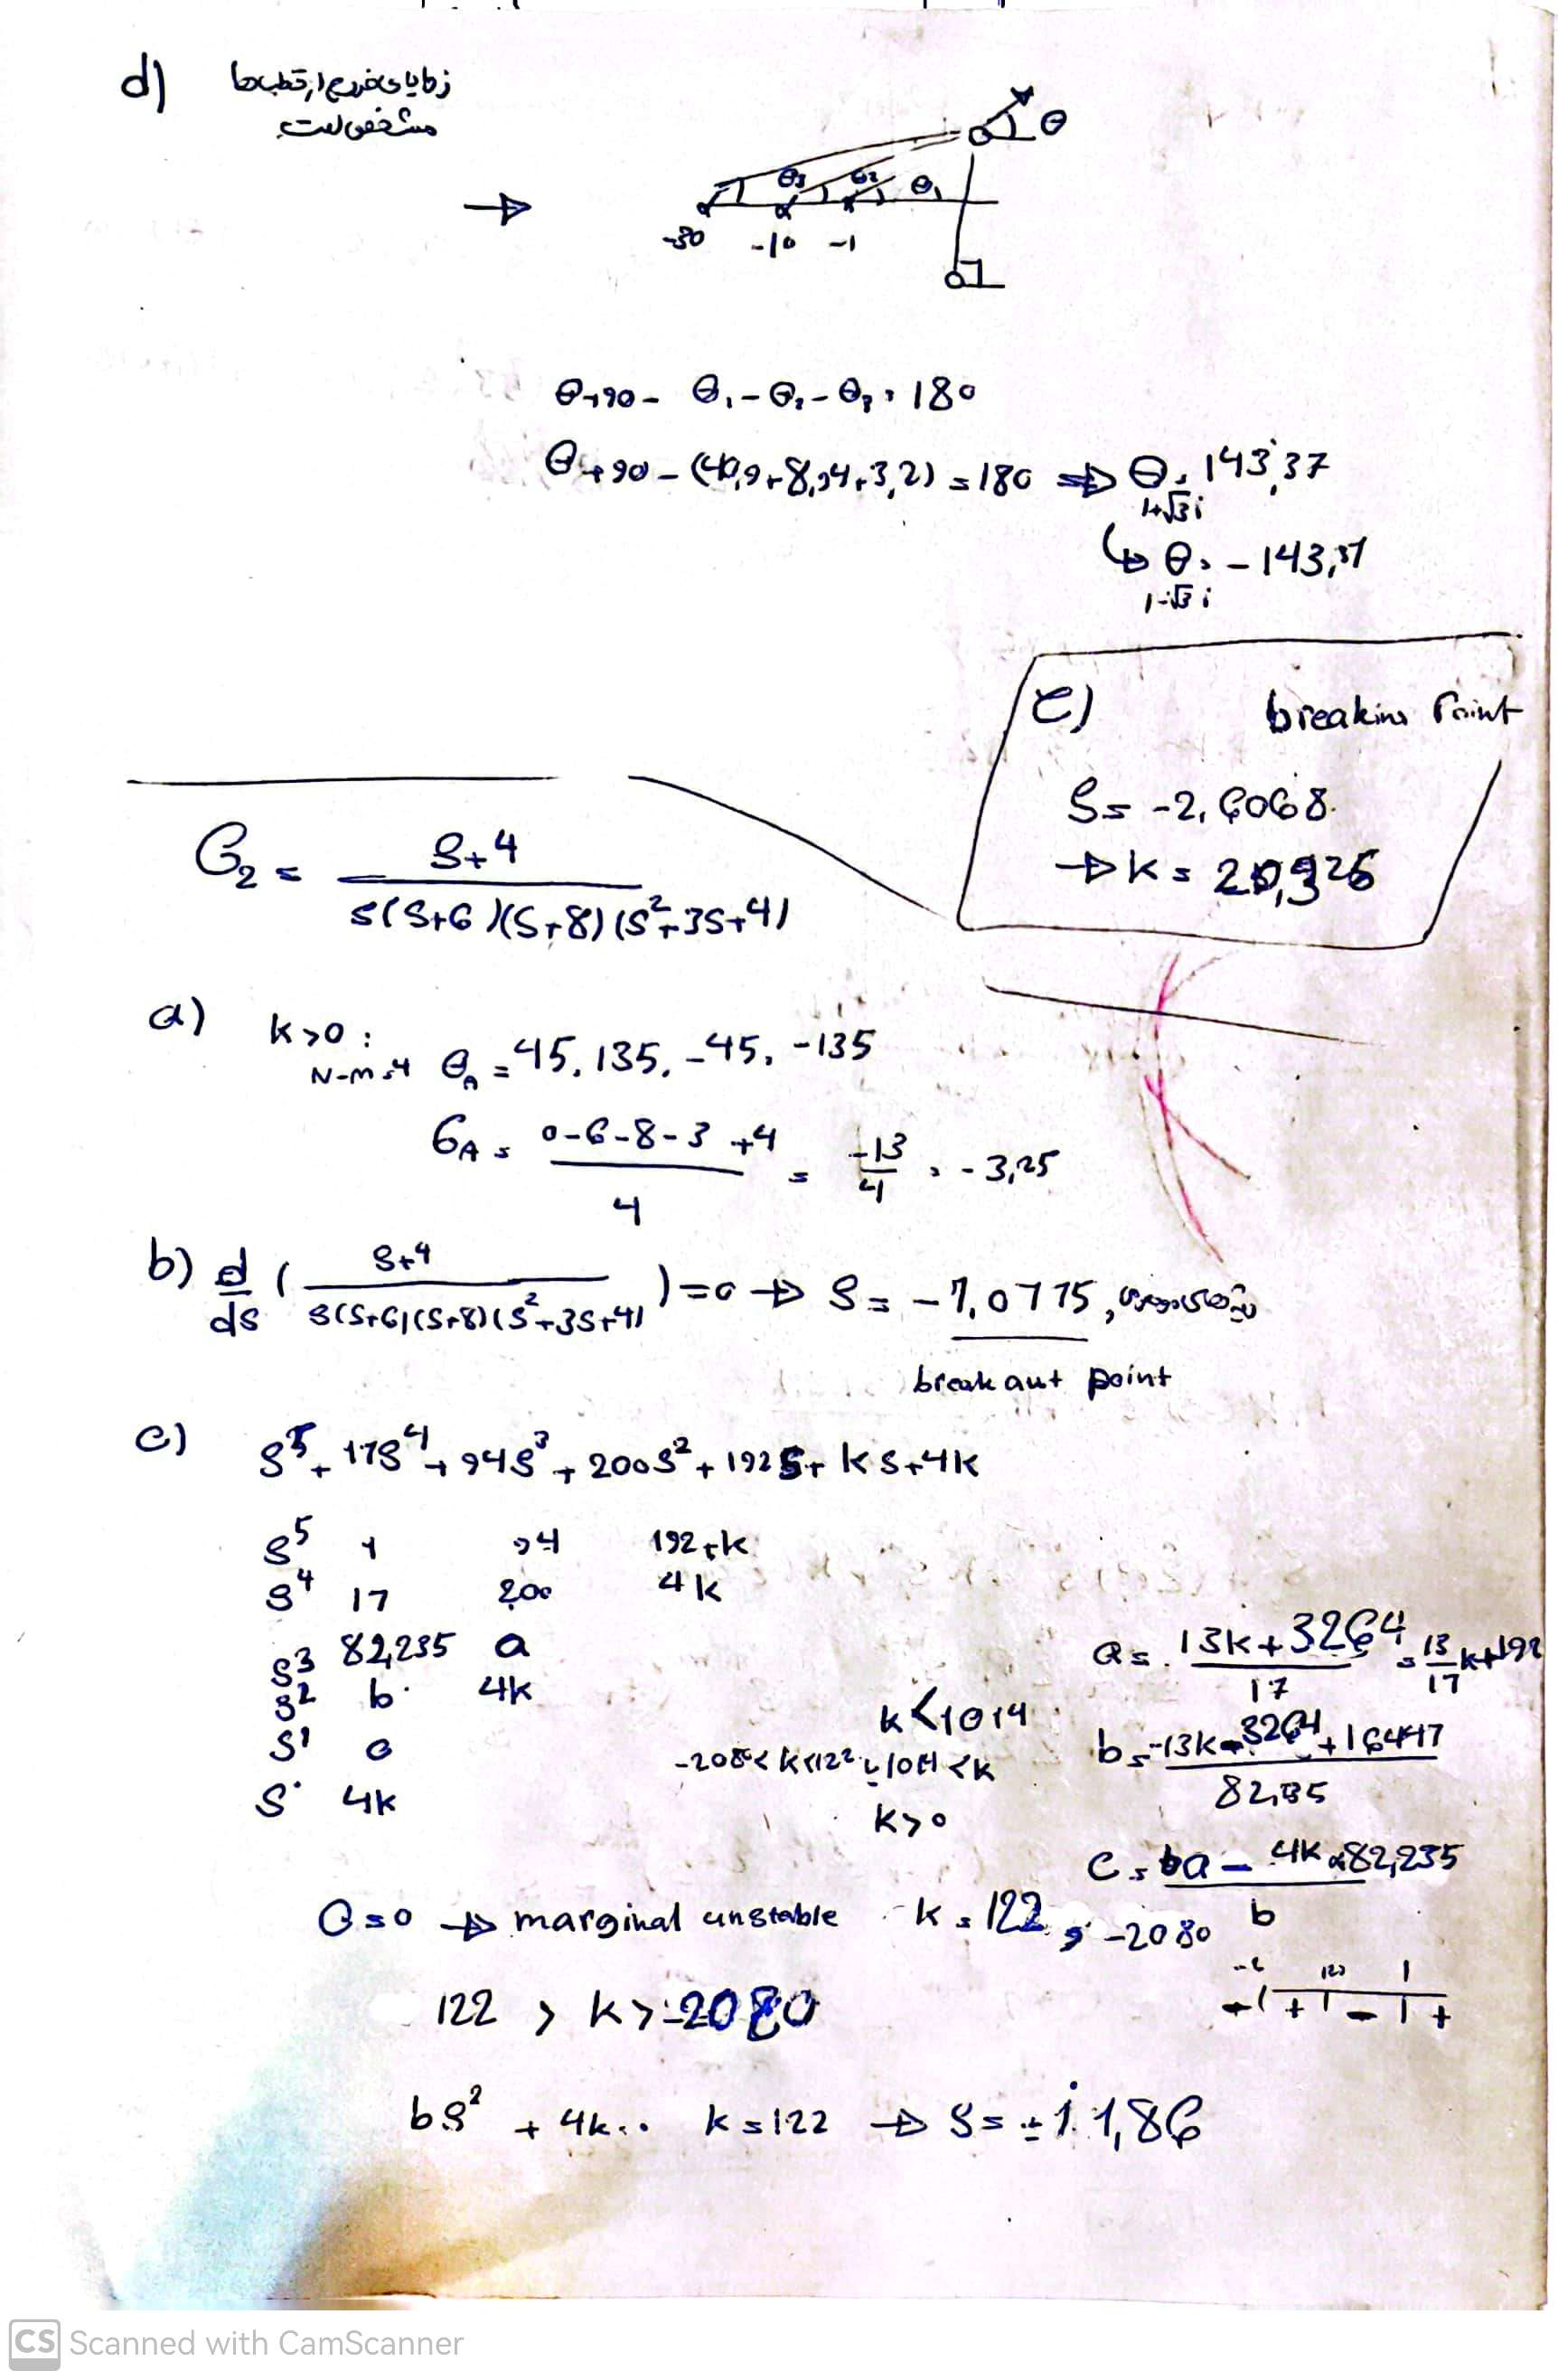 d) زوایای خروج از قطب‌ها
مشخص است
θ
θ₃ θ₂ θ₁
-30 -10 -1
θ+90 - θ₁ - θ₂ - θ₃ = 180
θ+90 - (40,9+8,94+3,2) = 180 ⇒ θ = 143,37
1+√3i
↳ θ = -143,37
1-√3i
e) breakin Point
S = -2,6068
→ K = 20,926
G₂ = (S+4) / (S(S+6)(S+8)(S²+3S+4))
a) K>0 :
N-m=4 θ_A = 45, 135, -45, -135
σ_A = (0-6-8-3+4) / 4 = -13/4 = -3,25
b) d/ds ( (S+4) / (S(S+6)(S+8)(S²+3S+4)) ) = 0 ⇒ S = -7,0775,
breakout point
c) S⁵ + 17S⁴ + 94S³ + 200S² + 192S + KS + 4K
S⁵ 1 94 192+K
S⁴ 17 200 4K
S³ 82,235 a
S² b 4K
S¹ c
S° 4K
a = (13K+3264) / 17 = 13/17 K+192
K<1014
b = (-13K-3264+16447) / 82,235
-2080<K<122 و 1014<K
K>0
C = (ba - 4K×82,235) / b
C=0 ⇒ marginal unstable K = 122 و -2080
122 > K > -2080
bS² + 4K.. K=122 ⇒ S = ±j 1,86
CS Scanned with CamScanner